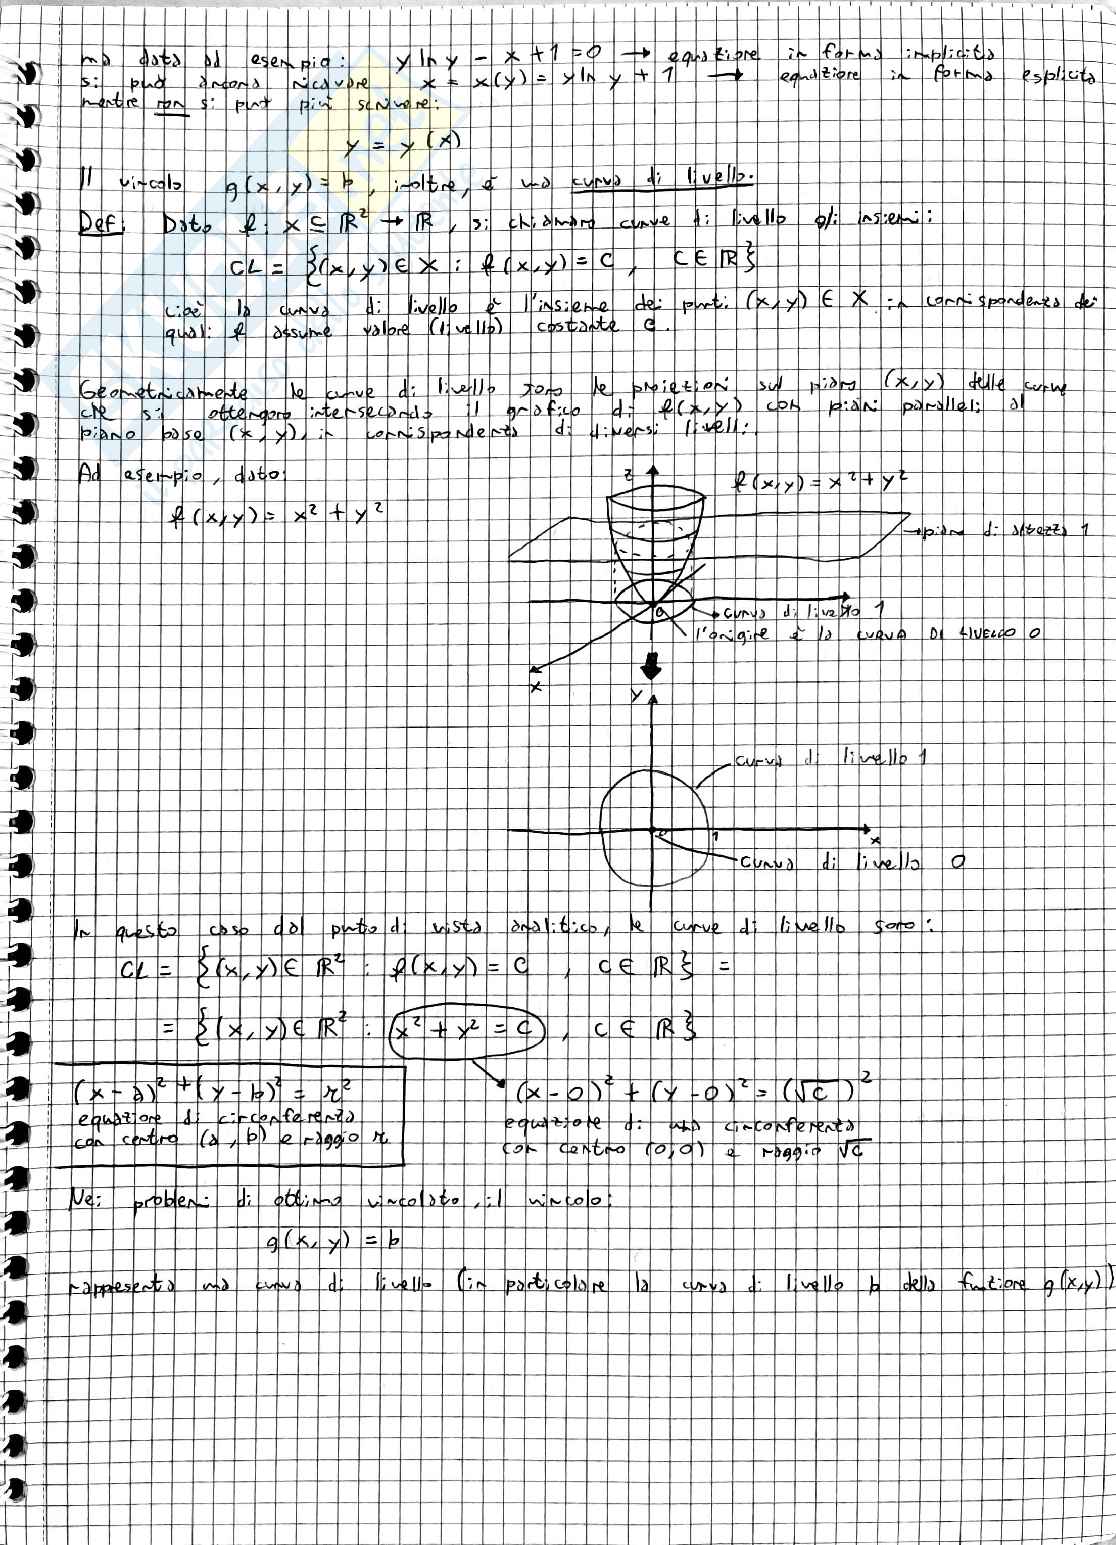 ma data ad esempio: y ln y - x + 1 = 0 → equazione in forma implicita
si può ancora ricavare x = x(y) = y ln y + 1 → equazione in forma esplicita
mentre non si può più scrivere:
y = y(x)
Il vincolo g(x,y) = b, inoltre, è una curva di livello.
Def: Data f: X ⊆ ℝ² → ℝ, si chiamano curve di livello gli insiemi:
CL = {(x,y) ∈ X : f(x,y) = C , C ∈ ℝ}
cioè la curva di livello è l'insieme dei punti (x,y) ∈ X in corrispondenza dei
quali f assume valore (livello) costante C.
Geometricamente le curve di livello sono le proiezioni sul piano (x,y) delle curve
che si ottengono intersecando il grafico di f(x,y) con piani paralleli al
piano base (x,y), in corrispondenza di diversi livelli.
Ad esempio, data:
f(x,y) = x² + y²
z
f(x,y) = x² + y²
→ piano di altezza 1
0
y
→ curva di livello 1
l'origine è la CURVA DI LIVELLO 0
x
y
curva di livello 1
0 1 x
curva di livello 0
In questo caso dal punto di vista analitico, le curve di livello sono:
CL = {(x,y) ∈ ℝ² : f(x,y) = C , C ∈ ℝ} =
= {(x,y) ∈ ℝ² : x² + y² = C , C ∈ ℝ}
(x-a)² + (y-b)² = r²
equazione di circonferenza
con centro (a,b) e raggio r
(x-0)² + (y-0)² = (√C)²
equazione di una circonferenza
con centro (0,0) e raggio √C
Nei problemi di ottimo vincolato, il vincolo:
g(x,y) = b
rappresenta una curva di livello (in particolare la curva di livello b della funzione g(x,y))